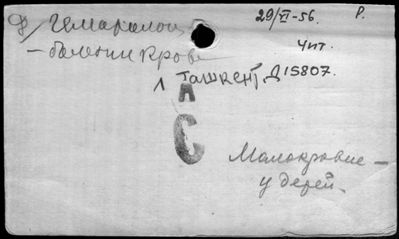 29/VI-56. Р.
Ф/ Гематолог
Чит.
- болезни кров
1 Ташкент, Д15807.
А
С
Малокровие -
у детей.